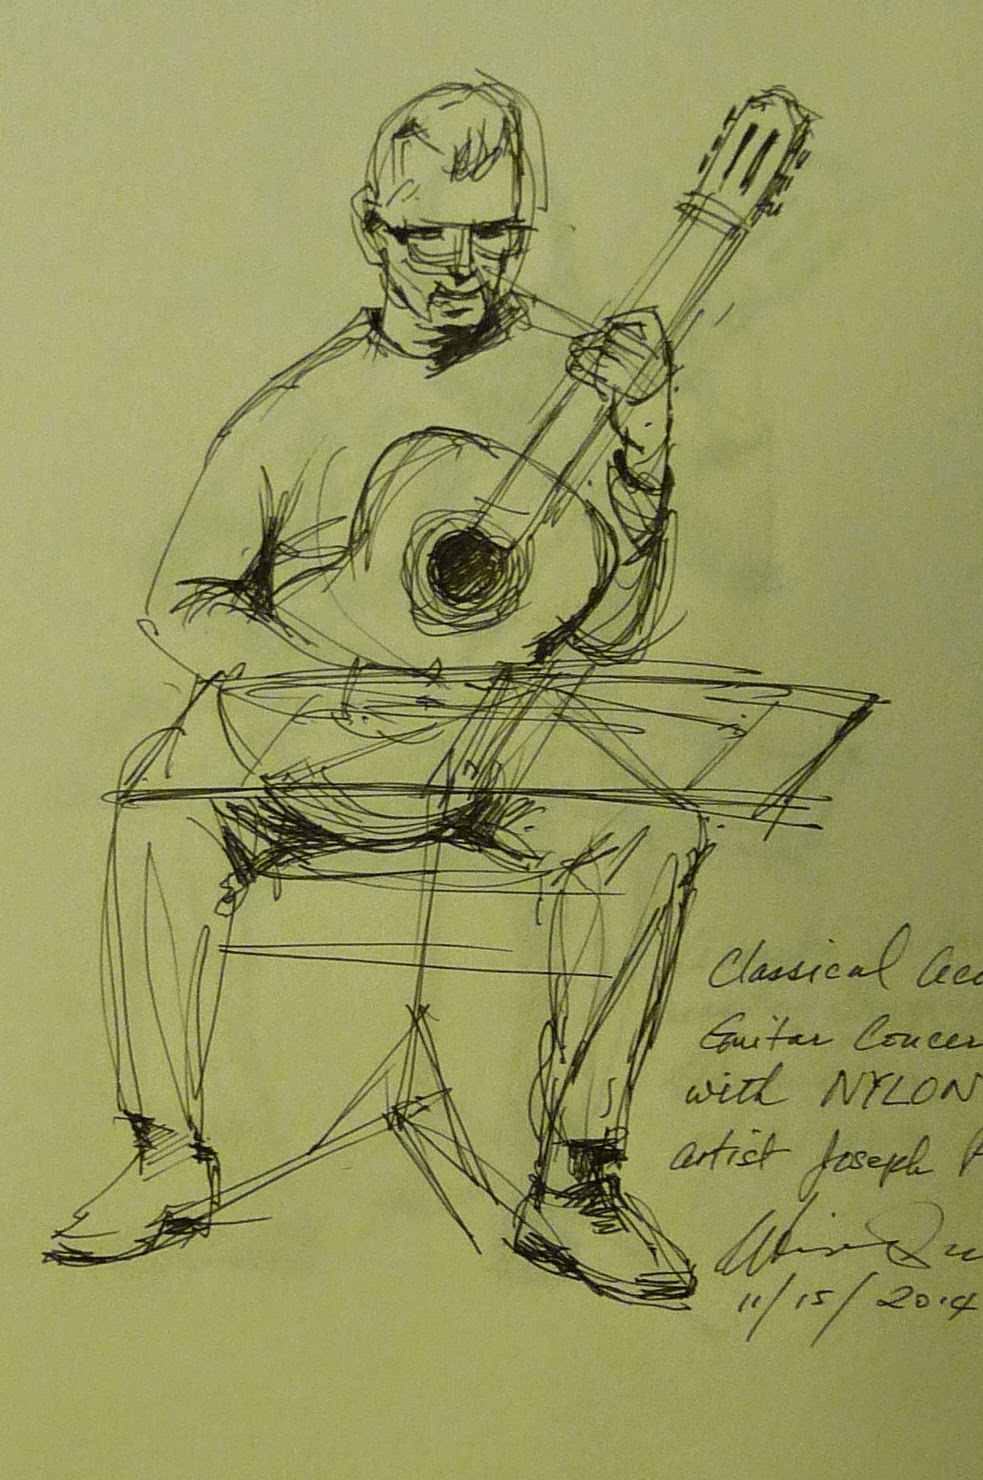 Classical
Guitar Concer
with NYLON
artist Joseph
11/15/2014